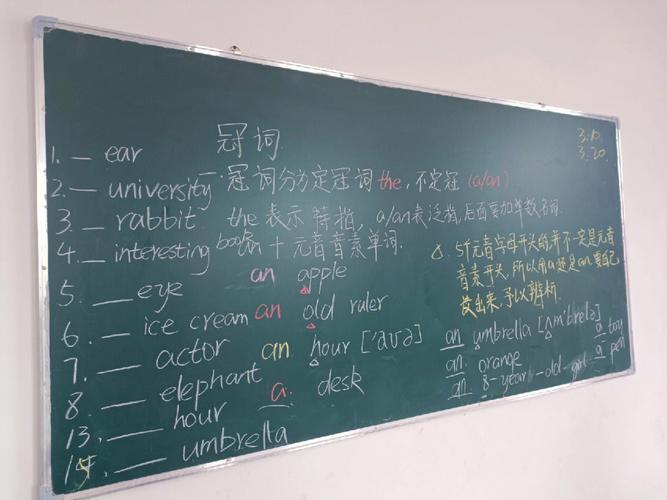 冠词
3.10
3.20
1. __ ear
2. __ university
一. 冠词分为定冠词the, 不定冠 (a/an)
3. __ rabbit
the 表示特指, a/an表泛指,后面要加单数名词.
4. __ interesting book
an 十 元音音素单词.
△. 5个元音字母开头的,并不一定是元音
音素开头, 所以用a还是an, 要自己
发出来, 予以辨析.
5. __ eye
an apple
6. __ ice cream
an old ruler
7. __ actor
an hour ['aʊə]
8. __ elephant
a. desk
13. __ hour
14. __ umbrella
an umbrella [ʌm'brelə]
a toy
an. orange
a pen
an 8-year-old-girl